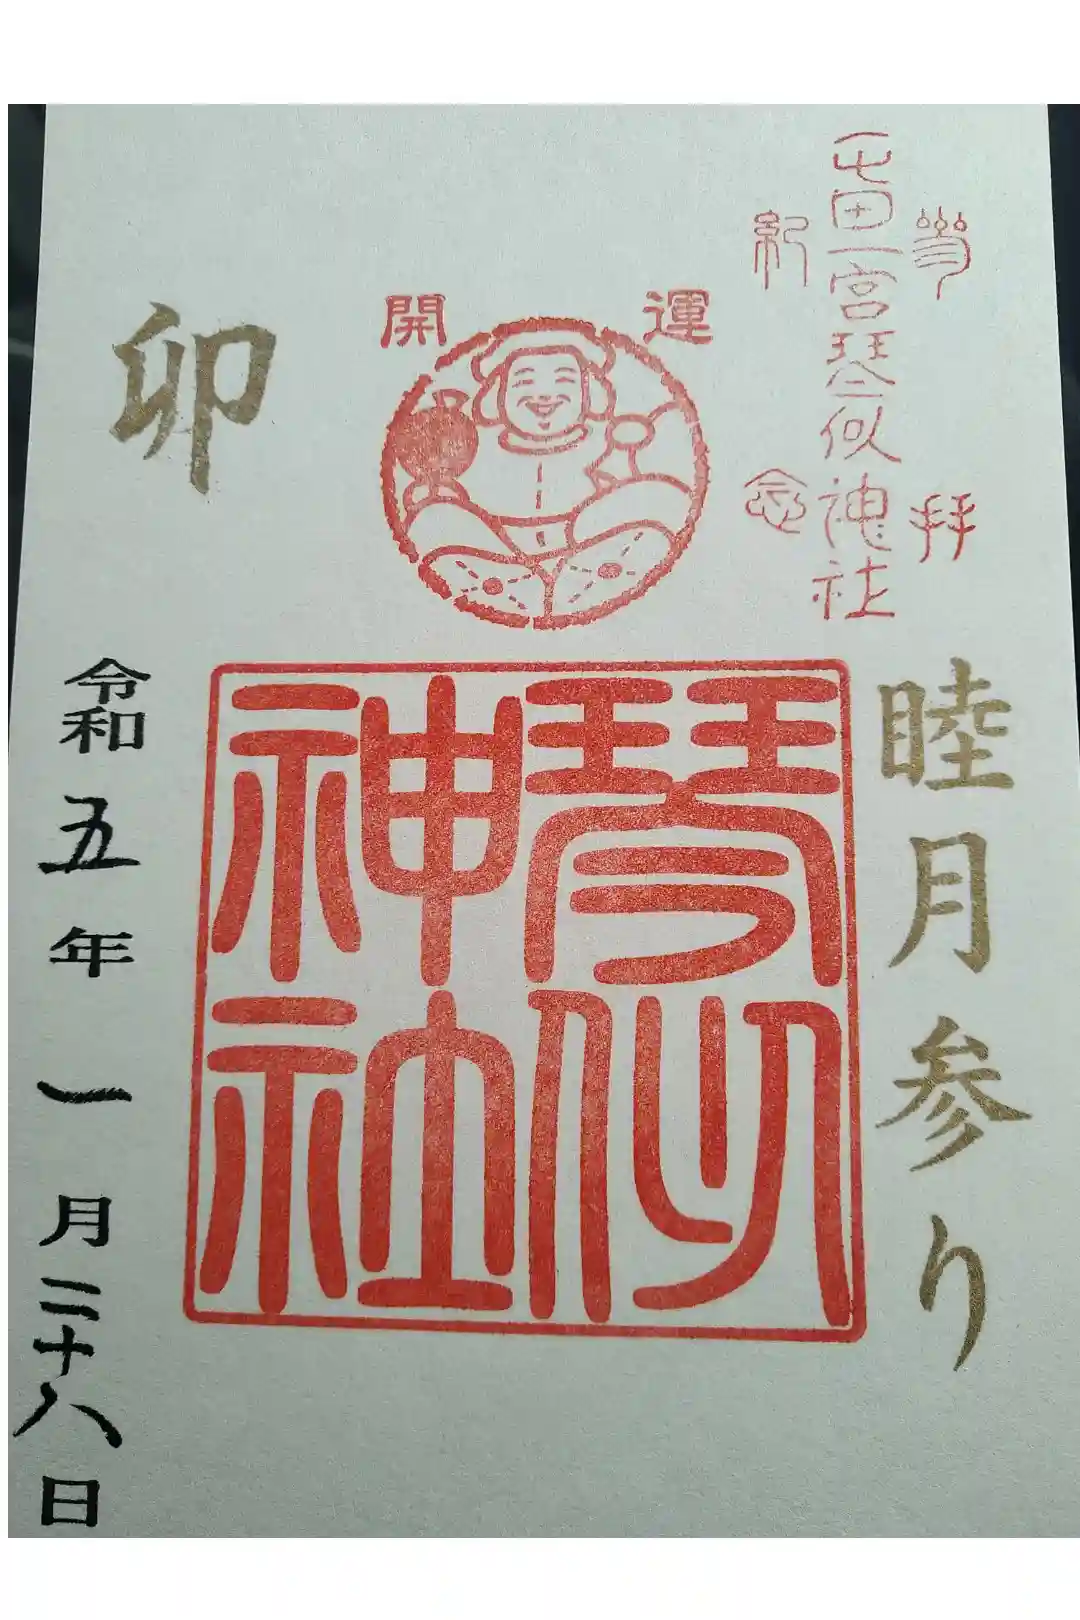 参拝
屯田一宮琴似神社
紀念
開運
睦月参り
琴似
神社
卯
令和五年一月二十八日